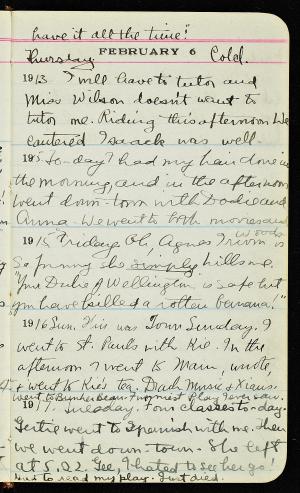 have it all the time."
Thursday FEBRUARY 6 Cold.
1913. I will have to tutor and
Miss Wilson doesn't want to
tutor me. Riding this afternoon. We
cantered Isaack was well.
1915 To-day I had my hair done in
the morning, and in the afternoon
went down-town with Dodie and
Anna. We went to both movies and
Woods
1915 Friday. Oh, Agnes is
so funny she simply kills me.
"The Duke of Wellington is safe but
you have killed a rotten banana!"
1916 Sun. This was Town Sunday. I
went to St. Pauls with Kie. In the
afternoon I went to Main, wrote,
& went to Kie's tea. Dach Music & Xions.
went to Bunker Bean. Funniest Play I ever saw.
1917. Tuesday. Four classes to-day.
Gertie went to Spanish with me. Then
we went down-town. She left
at 5.02. Gee, I hated to see her go!
Had to read my play. Just died.